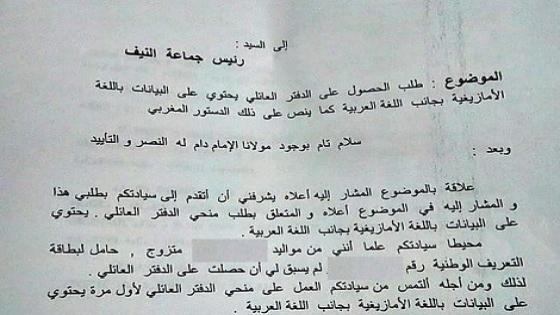 إلى السيد :
رئيس جماعة النيف
الموضوع : طلب الحصول على الدفتر العائلي يحتوي على البيانات باللغة
الأمازيغية بجانب اللغة العربية كما ينص على ذلك الدستور المغربي
سلام تام بوجود مولانا الإمام دام له النصر و التأييد
وبعد :
علاقة بالموضوع المشار إليه أعلاه يشرفني أن أتقدم إلى سيادتكم بطلبي هذا
و المشار إليه في الموضوع أعلاه و المتعلق بطلب منحي الدفتر العائلي . يحتوي
على البيانات باللغة الأمازيغية بجانب اللغة العربية .
محيطا سيادتكم علما أنني من مواليد متزوج , حامل لبطاقة
التعريف الوطنية رقم لم يسبق لي أن حصلت على الدفتر العائلي .
لذلك ومن أجله ألتمس من سيادتكم العمل على منحي الدفتر العائلي لأول مرة يحتوي
على البيانات باللغة الأمازيغية بجانب اللغة العربية .